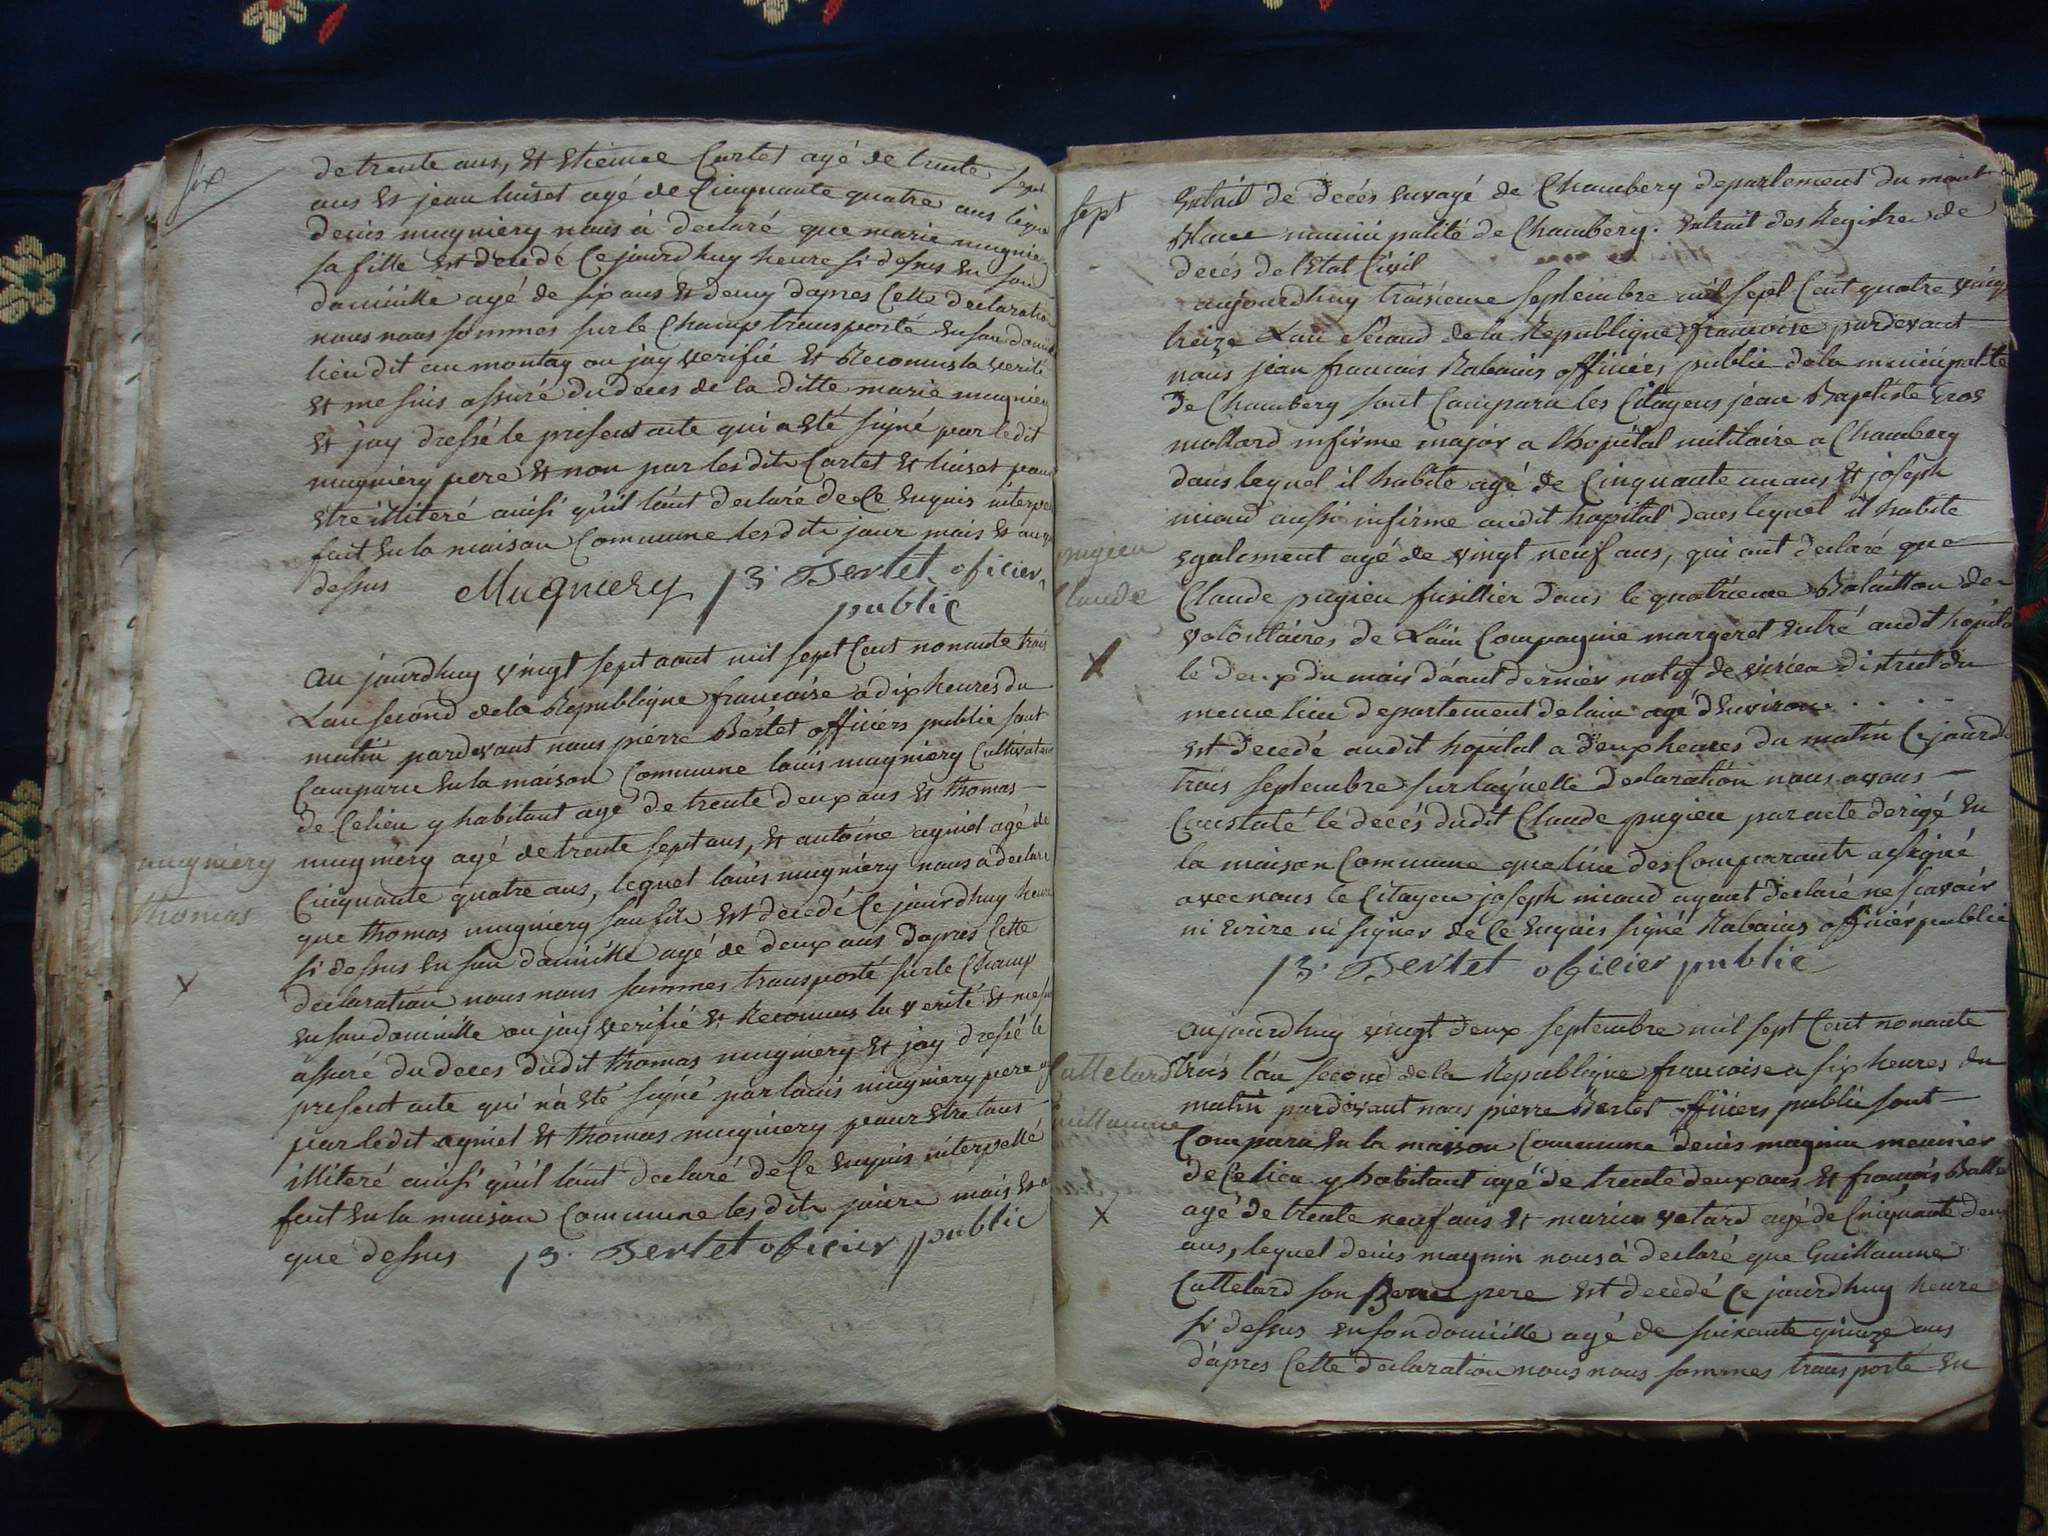 six
de trente ans, et etienne Cartet agé de trente sept
ans et jean huset agé de Cinquante quatre ans lequel
denis mugniery nous à declaré que marie mugniery
sa fille est decedé Ce jourdhuy heure si desus en son
domicille agé de six ans et demy dapres Cette declaration
nous nous sommes sur le Champ transporté en son domi
lieu dit au montag ou jay verifié et Reconnus la verité
et me suis assuré du deces de la ditte marie mugniery
et jay dressé le present acte qui a eté signé par ledit
mugniery pere et non par lesdits Cartet et huset pour
etre illiteré ainsi qu'il l'ont declaré de Ce enquis interpel
fait en la maison Commune lesdits jour mois et an que
dessus Mugniery P. Bertet oficier
public
mugniery
thomas
x
Au jourdhuy vingt sept aout mil sept Cent nonante trois
L'an second de la Republique francoise à dix heures du
matin pardevant nous pierre Bertet officiers public sont
Comparu en la maison Commune louis mugniery Cultivateur
de Celieu y habitant agé de trente deux ans et thomas
mugniery agé de trente sept ans, et antoine agniel agé de
Cinquante quatre ans, lequel louis mugniery nous a declaré
que thomas mugniery son fils est decedé Ce jourdhuy heure
si dessus en son domicille agé de deux ans dapres Cette
declaration nous nous sommes transporté sur le Champ
en son domicille ou jay verifié et Reconnus la verité et me suis
assuré du deces dudit thomas mugniery et jay dressé le
present acte qui n'a eté signé par louis mugniery pere
par ledit agniel et thomas mugniery pour etre tous
illiteré ainsi qu'il l'ont declaré de Ce enquis interpellé
fait en la maison Commune lesdits jour mois et a
que dessus P. Bertet oficier public
sept
Extrait de decés envoyé de Chambery departement du mont
blanc municipalité de Chambery. extrait des Registre de
decés de l'Etat Civil
aujourdhuy troisieme septembre mil sept Cent quatre vingt
treize L'an second de la Republique francoise pardevant
nous jean francois Rabains officiers public de la municipalité
de Chambery sont Comparu les Citoyens jean Baptiste gros
mollard infirme major a lhopital militaire a Chambery
dans lequel il habite agé de Cinquante un ans et joseph
miaud aussi infirme audit hopital dans lequel il habite
egalement agé de vingt neuf ans, qui ont declaré que
pugieu
Claude
x
Claude pugieu fusillier dans le quatrieme Bataillon de
volontaires de L'ain Compagnie margeret entré audit hopital
le deux du mois d'aout dernier natif de virieu district du
meme lieu departement de lain agé d'Environ . . . .
est decedé audit hopital a deux heures du matin Ce jourdh
trois septembre sur laquelle declaration nous avons
Constaté le decés dudit Claude pugieu par acte derigé en
la maison Commune que l'un des Comparants a signé
avec nous le Citoyen joseph miaud ayant declaré ne scavoir
ni ecrire ni signer de Ce enquis signé Rabains officier public
P. Bertet oficier public
Cattelard
Guillaume
x
aujourdhuy vingt deux septembre mil sept Cent nonante
trois l'an second de la Republique francoise a six heures du
matin pardevant nous pierre Bertet officiers public sont
Comparu en la maison Commune denis magnin meunier
de Celieu y habitant agé de trente deux ans et francois Ballet
agé de trente neuf ans et marin velard agé de Cinquante deux
ans, lequel denis magnin nous à declaré que Guillaume
Cattelard son Beau pere est decedé Ce jourdhuy heure
si dessus en son domicille agé de soixante quinze ans
d'apres Cette declaration nous nous sommes transporté en